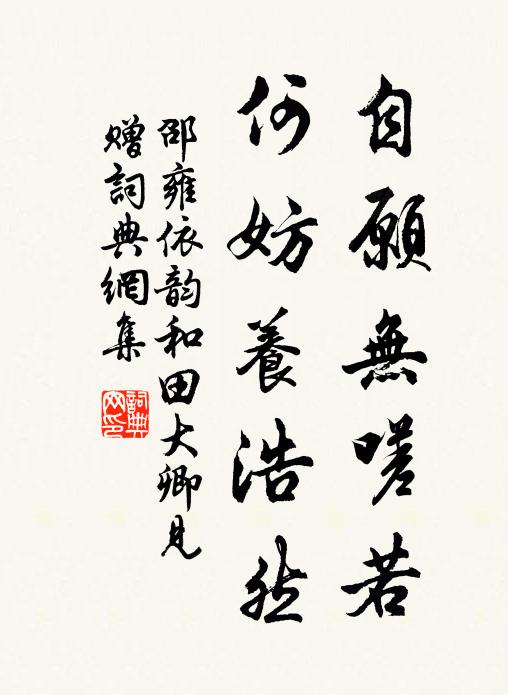 自願無嗟若
何妨養浩然
邵雍依韵和田大卿見
贈詞典網集
詞典
网印